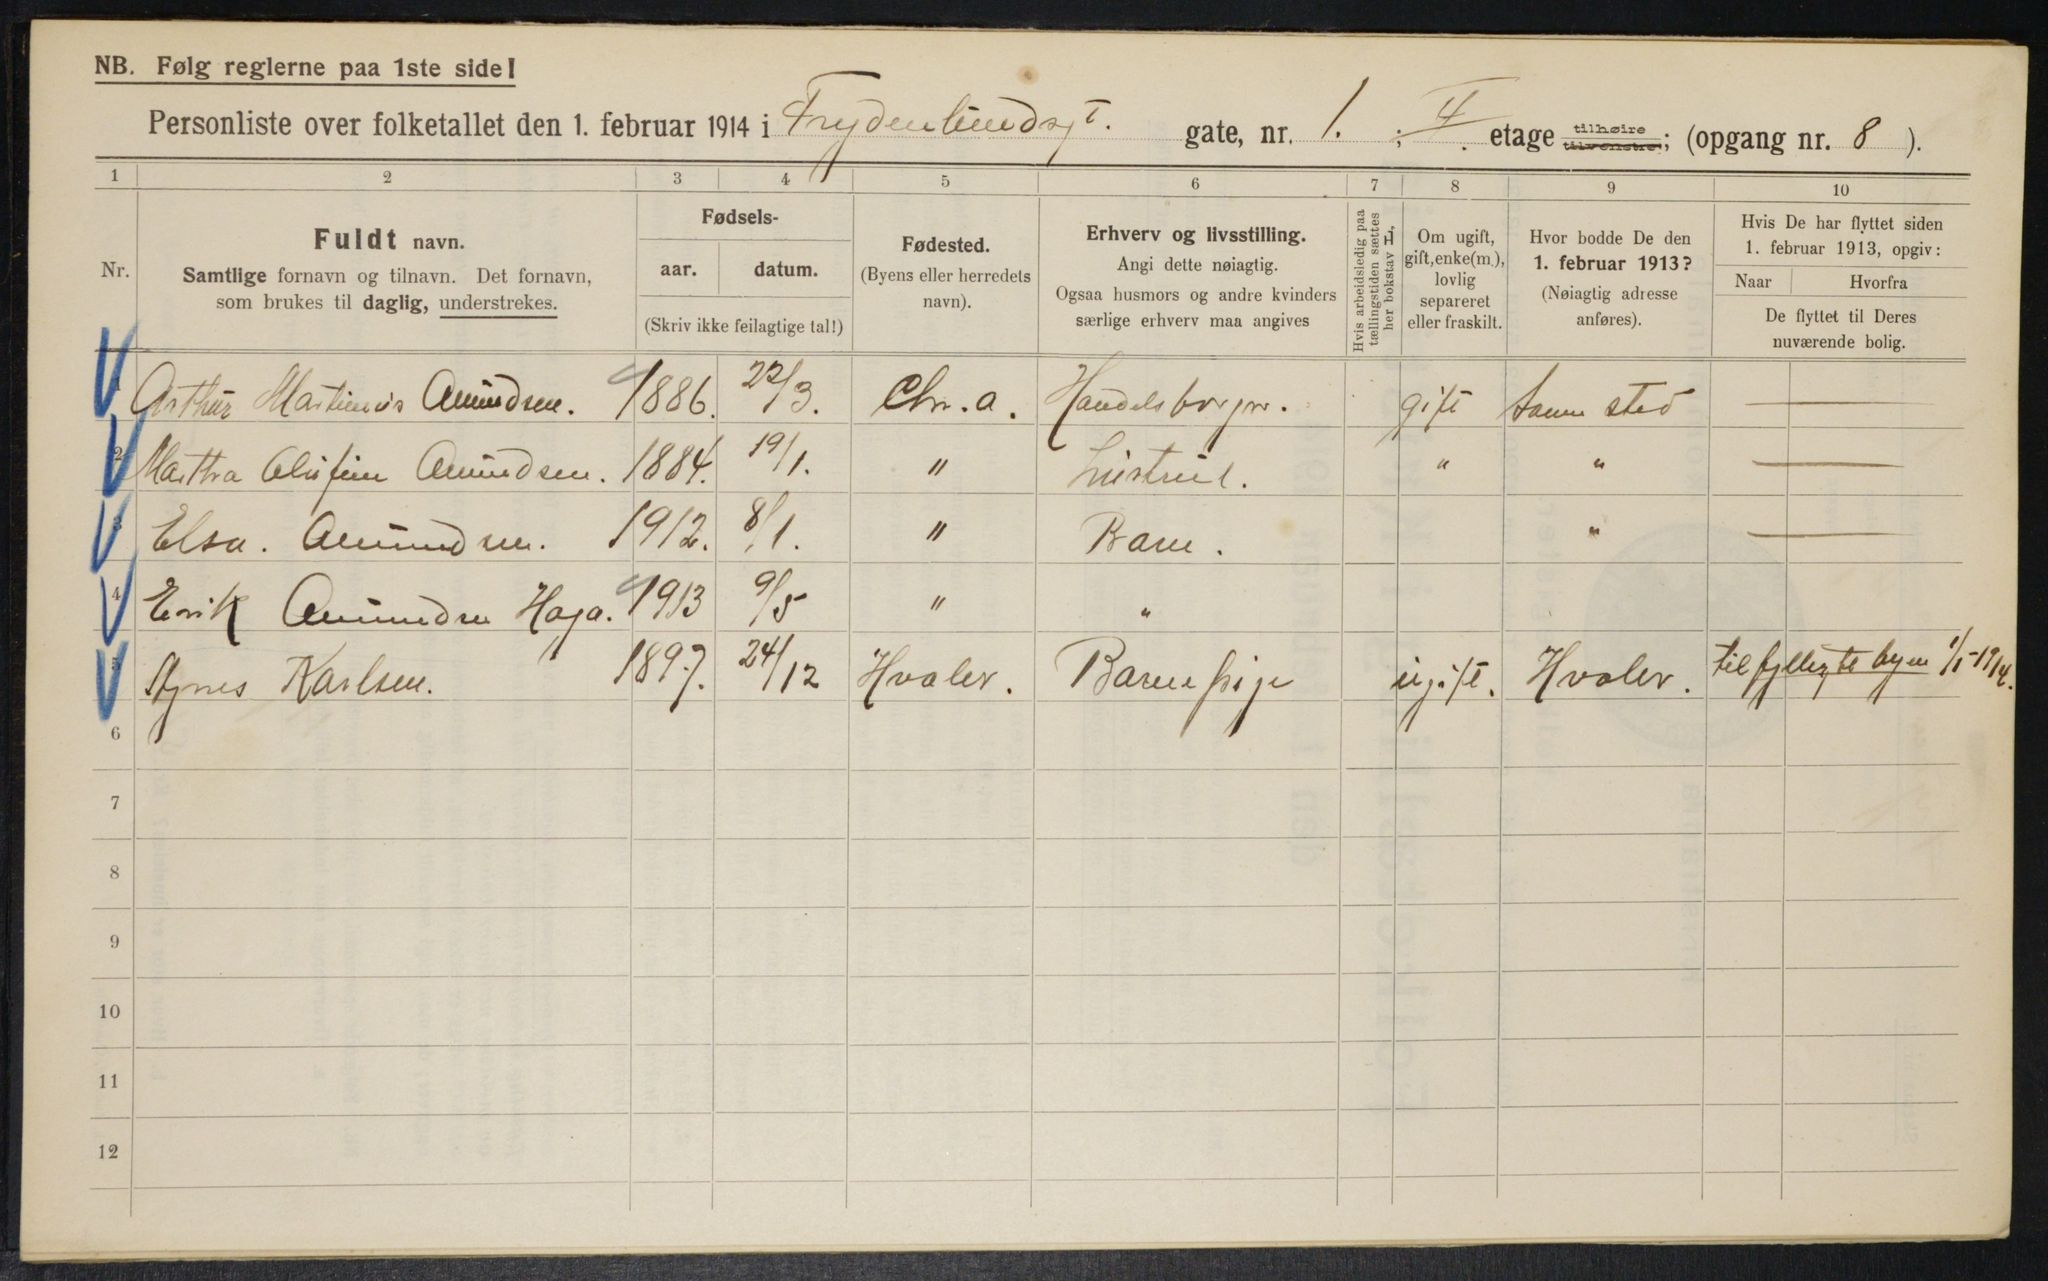 NB. Følg reglerne paa 1ste side!
Personliste over folketallet den 1. februar 1914 i Frydenlundsgt. gate, nr. 1. ; II. etage tilhøire tilvenstre; (opgang nr. 8 ).
1 2 3 4 5 6 7 8 9 10
Nr.
Fuldt navn.
Samtlige fornavn og tilnavn. Det fornavn,
som brukes til daglig, understrekes.
Fødsels-
aar. datum.
(Skriv ikke feilagtige tal!)
Fødested.
(Byens eller herredets
navn).
Erhverv og livsstilling.
Angi dette nøiagtig.
Ogsaa husmors og andre kvinders
særlige erhverv maa angives
Hvis arbeidsledig paa
tællingstiden sættes
her bokstav H.
Om ugift,
gift, enke(m.),
lovlig
separeret
eller fraskilt.
Hvor bodde De den
1. februar 1913?
(Nøiagtig adresse
anføres).
Hvis De har flyttet siden
1. februar 1913, opgiv:
Naar Hvorfra
De flyttet til Deres
nuværende bolig.
1 Arthur Martinius Amundsen. 1886. 22/3. Chr.a. Handelsborger. gift Samme sted —
2 Martha Olufine Amundsen. 1884. 19/1. " Hustru. " " —
3 Elsa. Amundsen. 1912. 8/1. " Barn. " —
4 Erik Amundsen Haga. 1913 9/5 " "
5 Agnes Karlsen. 1897. 24/12 Hvaler. Barnepige ugift. Hvaler. tilflyttet byen 1/1-1914.
6
7
8
9
10
11
12